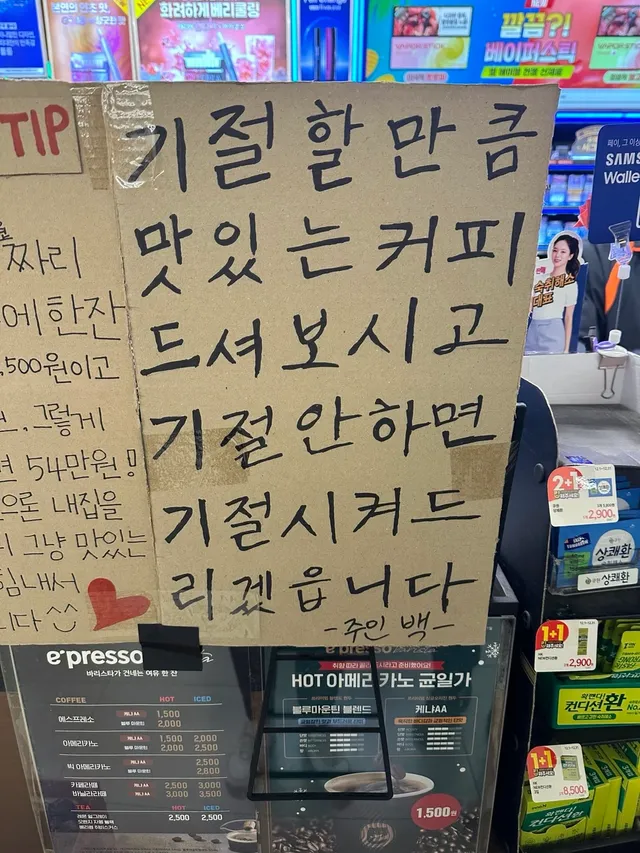 화려하게 베리쿨링
깔끔?!
베이퍼스틱
TIP
기절할만큼
맛있는커피
드셔보시고
기절안하면
기절시켜드
리겠읍니다
-주인 백-
짜리
에 한잔
,500원이고
그렇게
54만원!
내집을
그냥 맛있는
힘내서
니다 ^^
페이, 그 이상
SAMS
Walle
숙취해소
대표
2+1
2,900
상쾌환
상쾌환
1+1
2,900
컨디션환
1+1
8,500
e·presso
바리스타가 건네는 여유 한 잔
COFFEE HOT ICED
에스프레소 케냐AA 1,500
블루 마운틴 2,000
아메리카노 케냐AA 1,500 2,000
블루 마운틴 2,000 2,500
빅 아메리카노 케냐AA 2,500
블루 마운틴 2,800
카페라떼 케냐AA 2,500 3,000
바닐라라떼 케냐AA 3,000 3,500
TEA HOT ICED
2,500 2,500
e·presso
HOT 아메리카노 균일가
블루마운틴 블렌드
케냐AA
1,500원